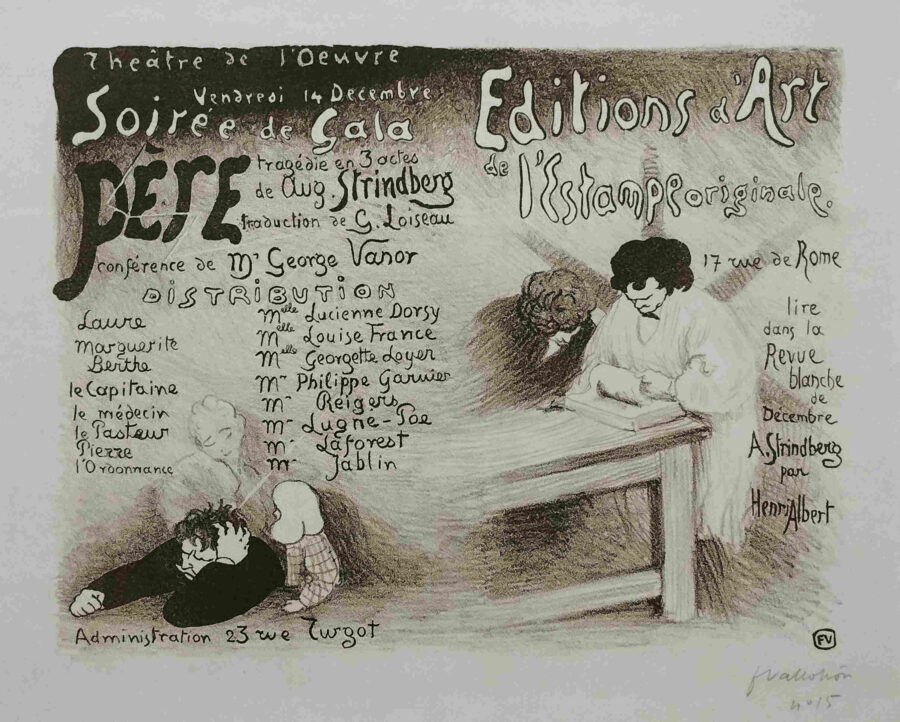 Theâtre de l'Oeuvre
Vendredi 14 Decembre
Soirée de Gala
PÈRE
tragédie en 3 actes
de Aug. Strindberg
traduction de G. Loiseau
conférence de Mr George Vanor
DISTRIBUTION
Laure Melle Lucienne Dorsy
Marguerite Melle Louise France
Berthe Melle Georgette Loyer
le Capitaine Mr Philippe Garnier
le médecin Mr Reigers
le Pasteur Mr Lugné-Poe
Pierre Mr Laforest
l'Ordonnance Mr Jablin
Administration 23 rue Turgot
Editions d'Art
de l'Estampe originale.
17 rue de Rome
lire
dans la
Revue
blanche
de
Décembre
A. Strindberg
par
Henri Albert
FV
fvallotton
no 15